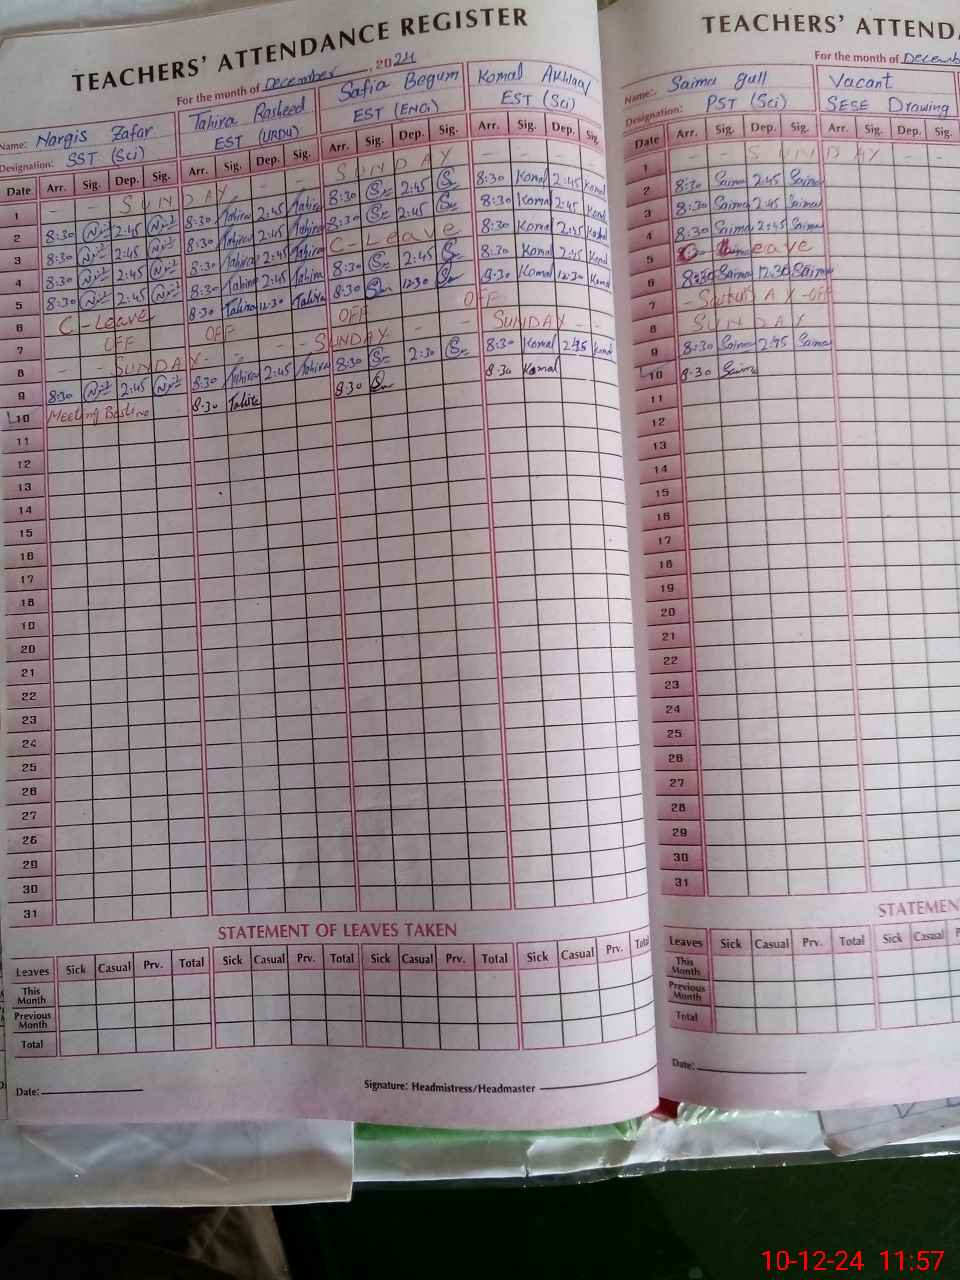 TEACHERS' ATTENDANCE REGISTER
For the month of December, 2024
Name: Nargis Zafar Tahira Rasheed Safia Begum Komal Akhlaq
Designation: SST (Sci) EST (URDU) EST (ENG) EST (Sci)
Date Arr. Sig. Dep. Sig. Arr. Sig. Dep. Sig. Arr. Sig. Dep. Sig. Arr. Sig. Dep. Sig.
1 - - SUNDAY - - SUNDAY - - - -
2 8:30 2:45 8:30 Tahira 2:45 Tahira 8:30 2:45 8:30 Komal 2:45 Komal
3 8:30 2:45 8:30 Tahira 2:45 Tahira 8:30 2:45 8:30 Komal 2:45 Komal
4 8:30 2:45 8:30 Tahira 2:45 Tahira C-Leave 8:30 Komal 2:45 Komal
5 8:30 2:45 8:30 Tahira 2:45 Tahira 8:30 2:45 8:30 Komal 2:45 Komal
6 C-Leave 8:30 Tahira 12:30 Tahira 8:30 12:30 8:30 Komal 12:30 Komal
7 OFF OFF OFF OFF
8 - - SUNDAY - - - SUNDAY - - SUNDAY - -
9 8:30 2:45 8:30 Tahira 2:45 Tahira 8:30 2:30 8:30 Komal 2:45 Komal
10 Meeting 8:30 Tahira 8:30 8:30 Komal
11
12
13
14
15
16
17
18
19
20
21
22
23
24
25
26
27
28
29
30
31
STATEMENT OF LEAVES TAKEN
Leaves Sick Casual Prv. Total Sick Casual Prv. Total Sick Casual Prv. Total Sick Casual Prv. Total
This Month
Previous Month
Total
Date:
Signature: Headmistress/Headmaster
TEACHERS' ATTENDA
For the month of Decemb
Name: Saima gull Vacant
Designation: PST (Sci) SESE Drawing
Date Arr. Sig. Dep. Sig. Arr. Sig. Dep. Sig.
1 - - SUNDAY - -
2 8:30 Saima 2:45 Saima
3 8:30 Saima 2:45 Saima
4 8:30 Saima 2:45 Saima
5 Leave
6 8:30 Saima 12:30 Saima
7 OFF
8 SUNDAY
9 8:30 Saima 2:45 Saima
10 8:30 Saima
11
12
13
14
15
16
17
18
19
20
21
22
23
24
25
26
27
28
29
30
31
STATEMEN
Leaves Sick Casual Prv. Total Sick Casual
This Month
Previous Month
Total
Date:
10-12-24 11:57